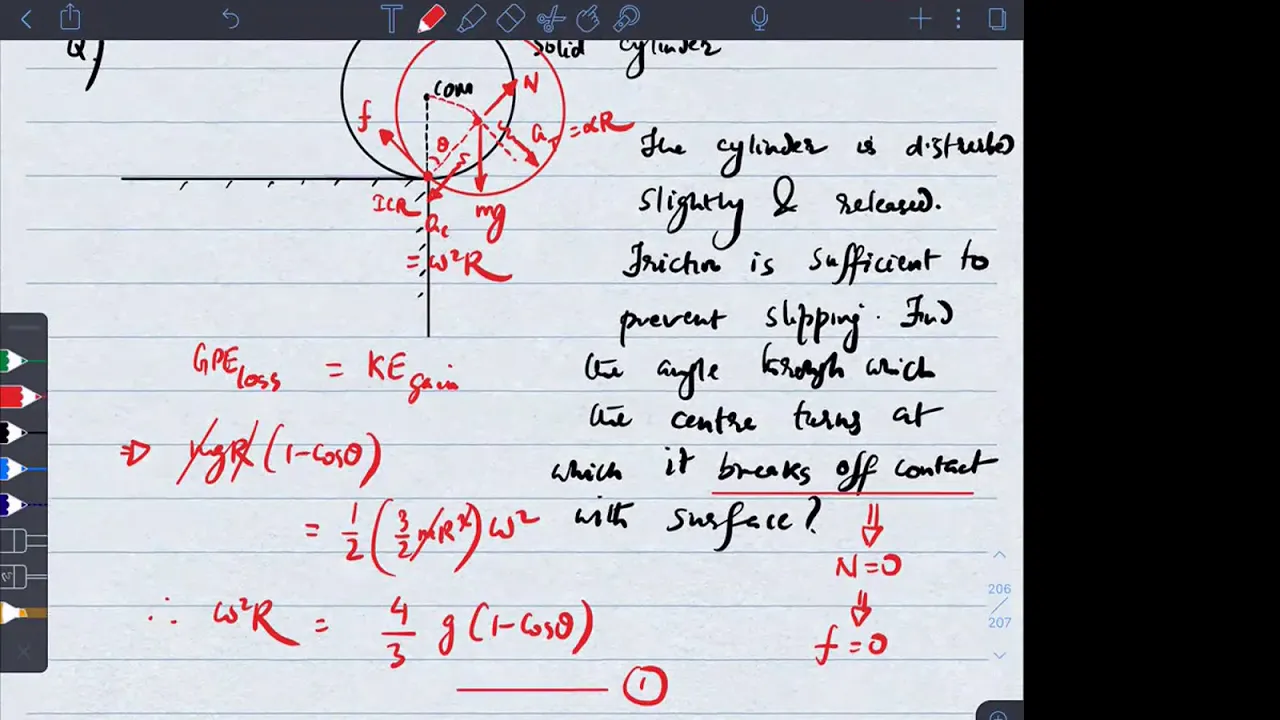 Q)
Solid cylinder
COM
N
f
θ
a_T = αR
ICR
mg
a_c
= ω²R
The cylinder is distrubed
slightly & released.
Friction is sufficient to
prevent slipping. Find
the angle through which
the centre turns at
which it breaks off contact
with surface?
N=0
f=0
GPE loss = KE gain
⇒ mgR (1-cosθ)
= 1/2 (3/2 mR²) ω²
∴ ω²R = 4/3 g(1-cosθ)
1
206
/
207